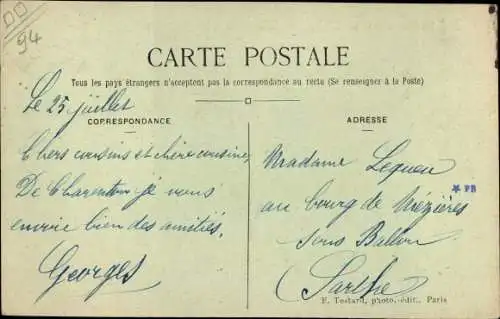 94
CARTE POSTALE
Tous les pays étrangers n'acceptent pas la correspondance au recto (Se renseigner à la Poste)
CORRESPONDANCE
ADRESSE
Le 25 juillet
Chers cousins et chère cousine,
De Charenton je vous
envoie bien des amitiés,
Georges
Madame Lequeu
au bourg de Mézières
sous Ballon
(Sarthe
PB
F. Testard, photo. édit., Paris